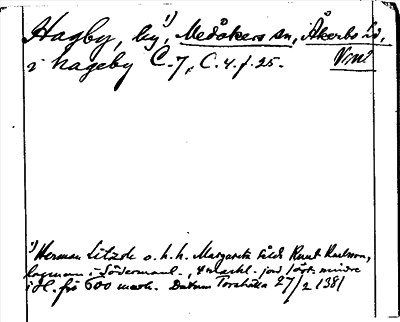 Hagby, by,¹⁾ Medåkers sn, Åkerbo hd,
Vml
i hageby C. 7, C. 4. f. 25.
¹⁾ Herman Litzde o. h. h. Margareta till Knut Karlsson,
lagman i Södermanl., 4 markl. jord 1 ört. mindre
i d. för 600 mark. Datum Torshälla 27/2 1381